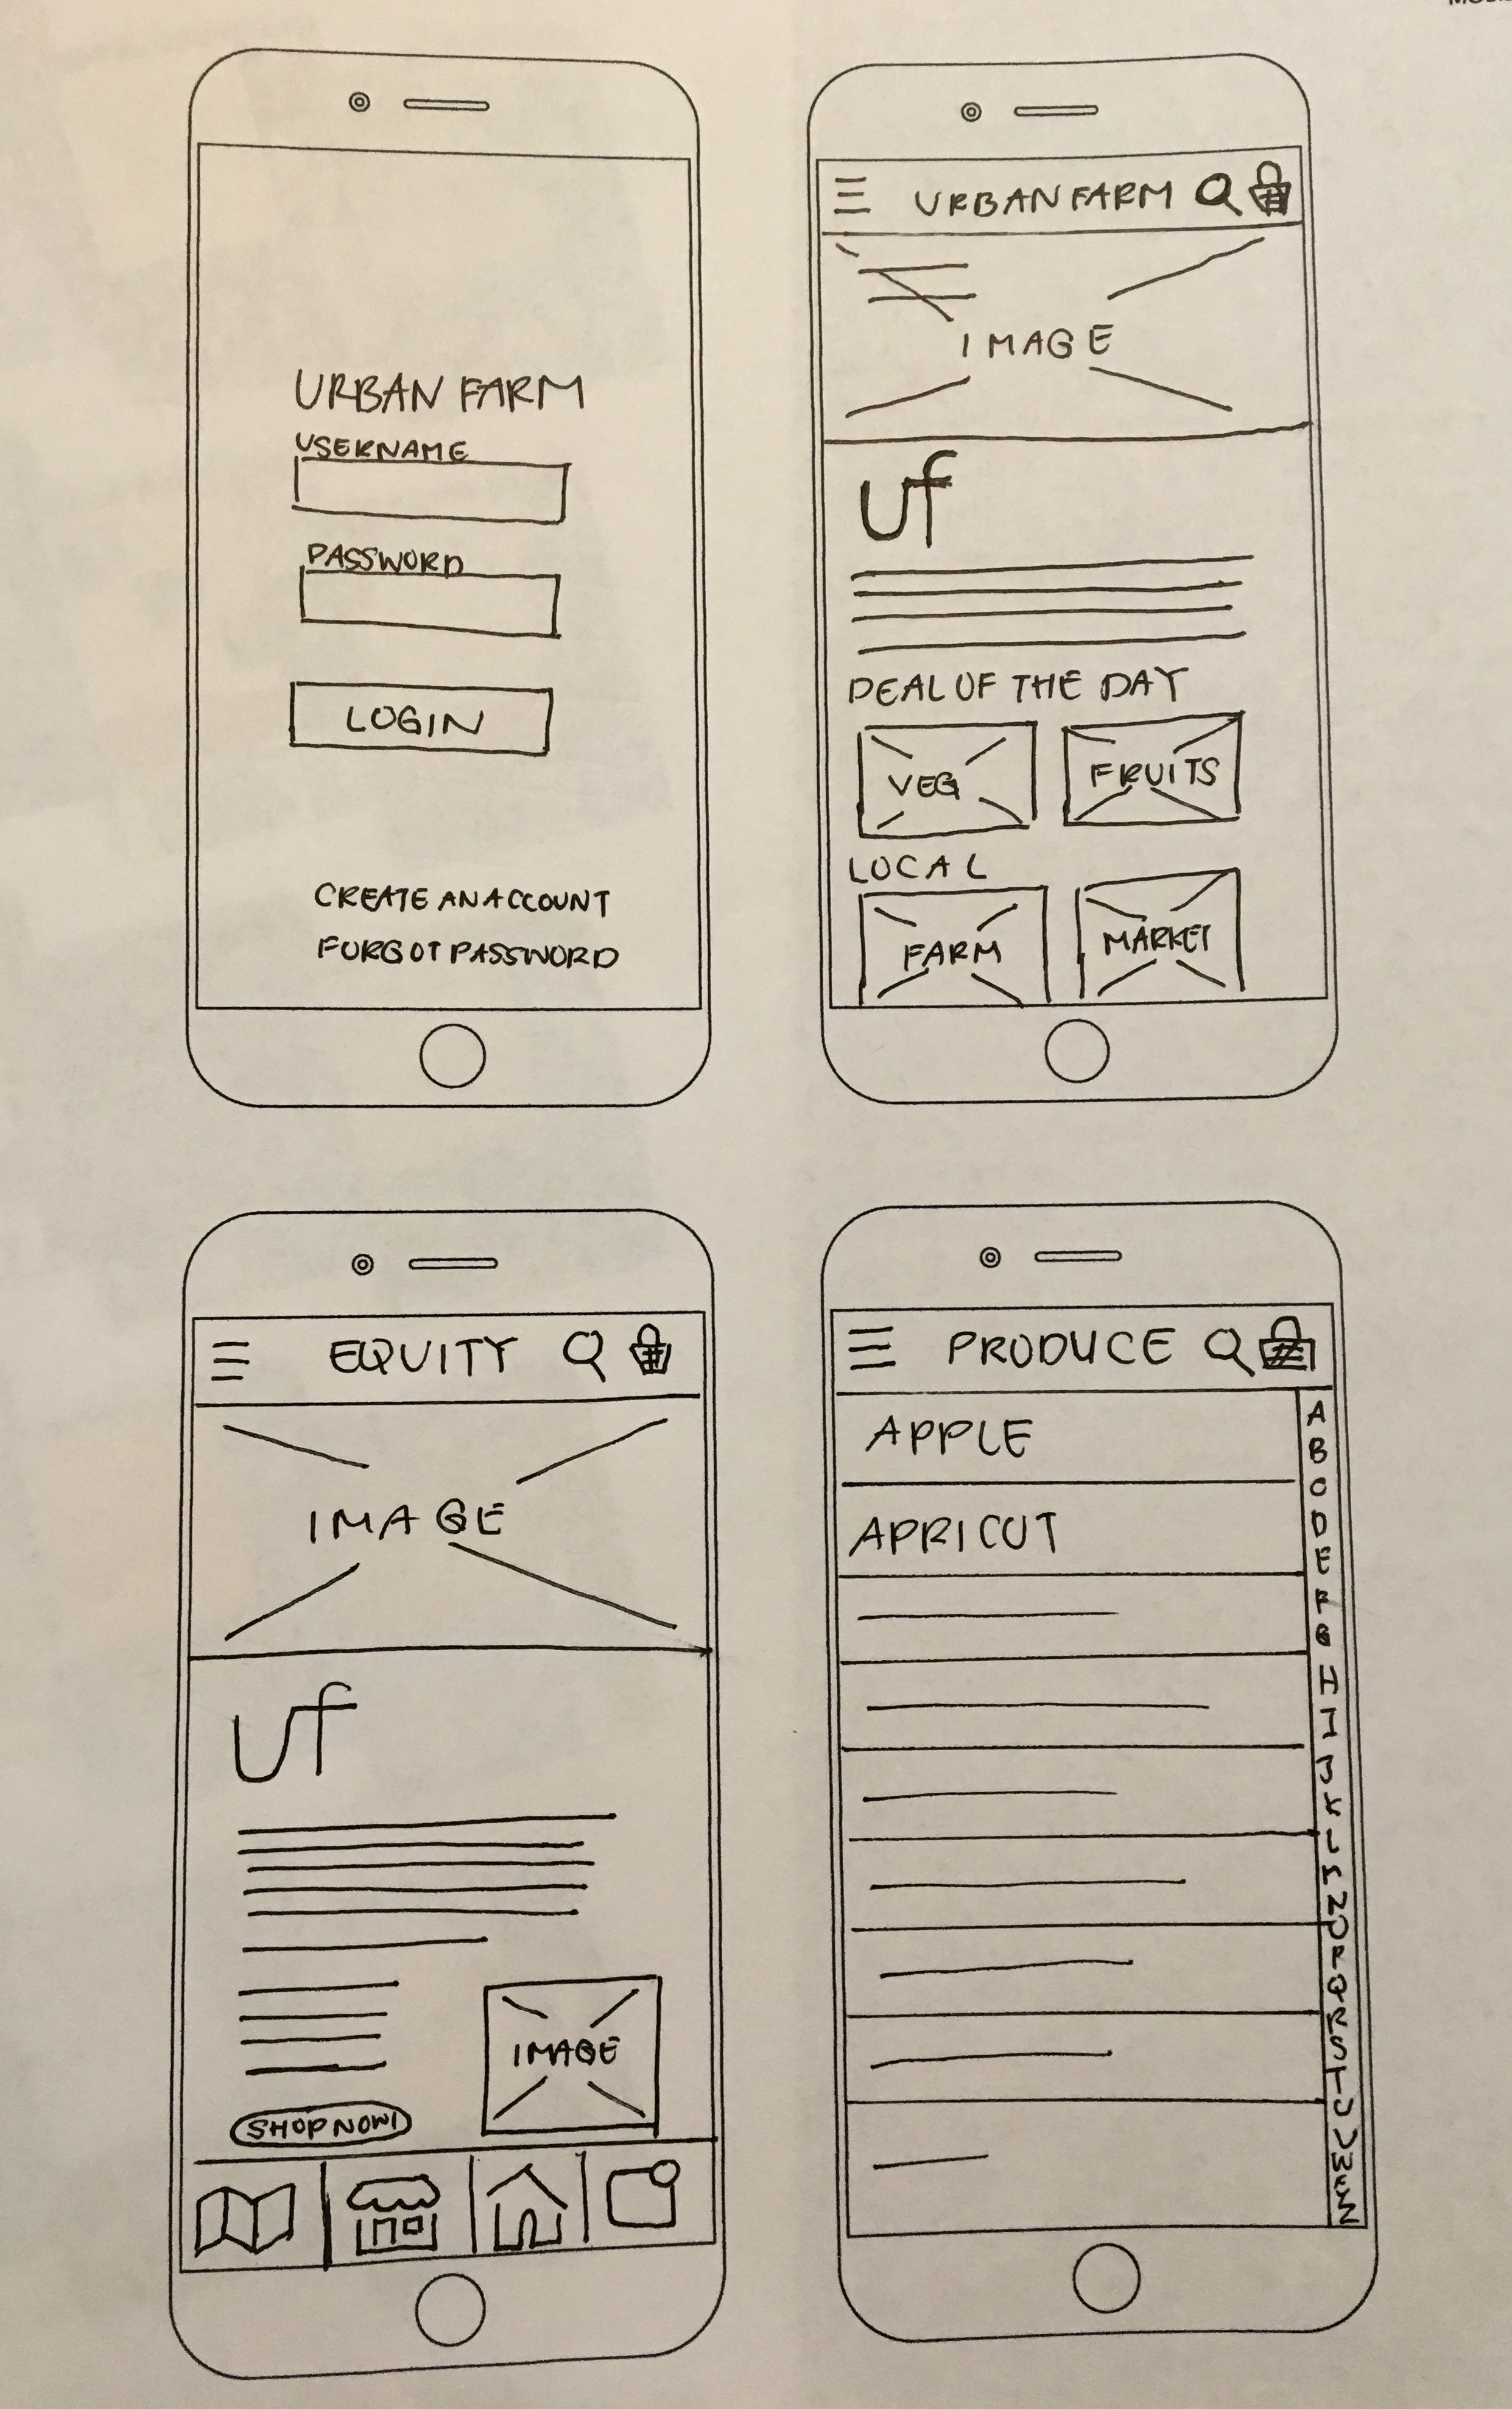 URBAN FARM
USERNAME
PASSWORD
LOGIN
CREATE AN ACCOUNT
FORGOT PASSWORD
URBAN FARM
IMAGE
uf
DEAL OF THE DAY
VEG
FRUITS
LOCAL
FARM
MARKET
EQUITY
IMAGE
uf
IMAGE
SHOP NOW!
PRODUCE
APPLE
APRICOT
A
B
C
D
E
F
G
H
I
J
K
L
M
N
O
P
Q
R
S
T
U
V
W
X
Y
Z